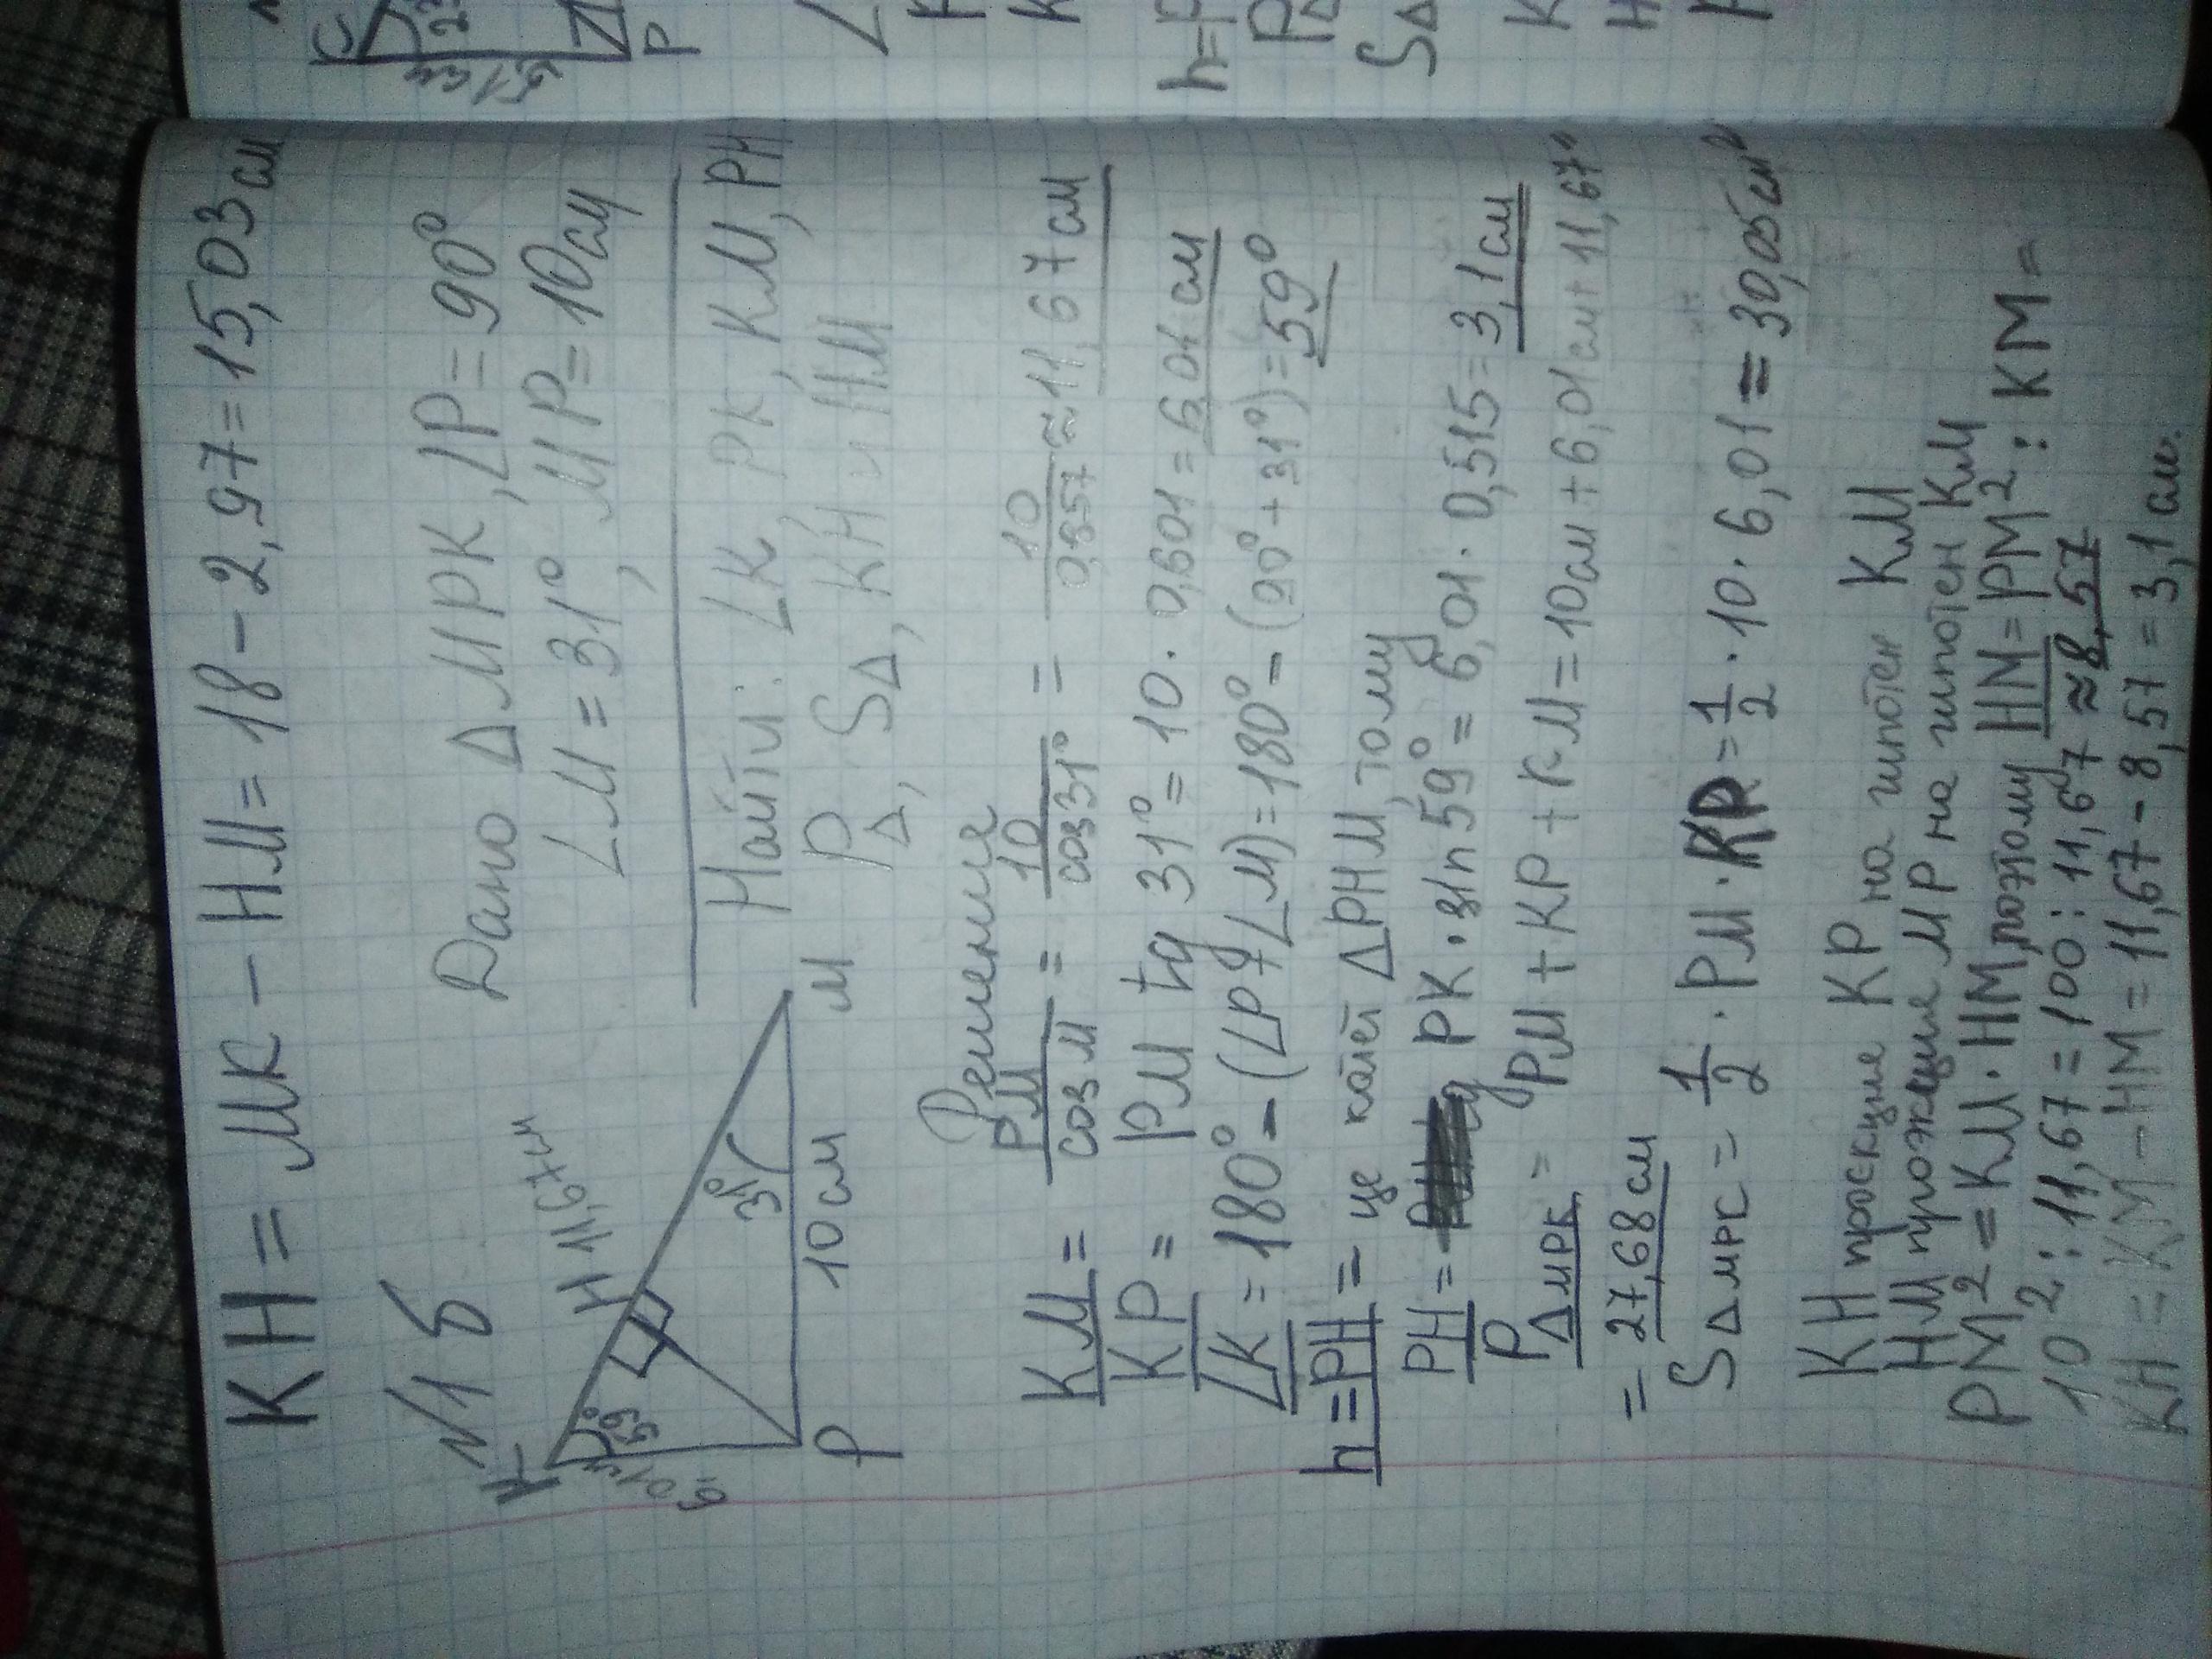 KH = MK - HM = 18 - 2,97 = 15,03 см
№1 б
Дано △MPK, ∠P = 90°
∠M = 31°, MP = 10 см
Найти: ∠K, PK, KM, PH
P△, S△, KH и HM
K
H
11,67 см
59°
6,01 см
31°
P
10 см
M
Решение
KM = PM/cos M = 10/cos 31° = 10/0,857 ≈ 11,67 см
KP = PM tg 31° = 10 · 0,601 = 6,01 см
∠K = 180° - (∠P+∠M) = 180° - (90° + 31°) = 59°
h = PH = це катет △PHM, тому
PH = PK · sin 59° = 6,01 · 0,515 = 3,1 см
P△MPK = PM + KP + KM = 10 см + 6,01 см + 11,67 =
= 27,68 см
S△MPC = 1/2 · PM · KP = 1/2 · 10 · 6,01 = 30,05 см²
KH проєкция KP на гипотен KM
HM прожецие MP на гипотен KM
PM² = KM · HM, поэтому HM = PM² : KM =
10² : 11,67 = 100 : 11,67 ≈ 8,57
KH = KM - HM = 11,67 - 8,57 = 3,1 см.
C
5,1 см
P
∠
K
h = P
P△
S△
K
H